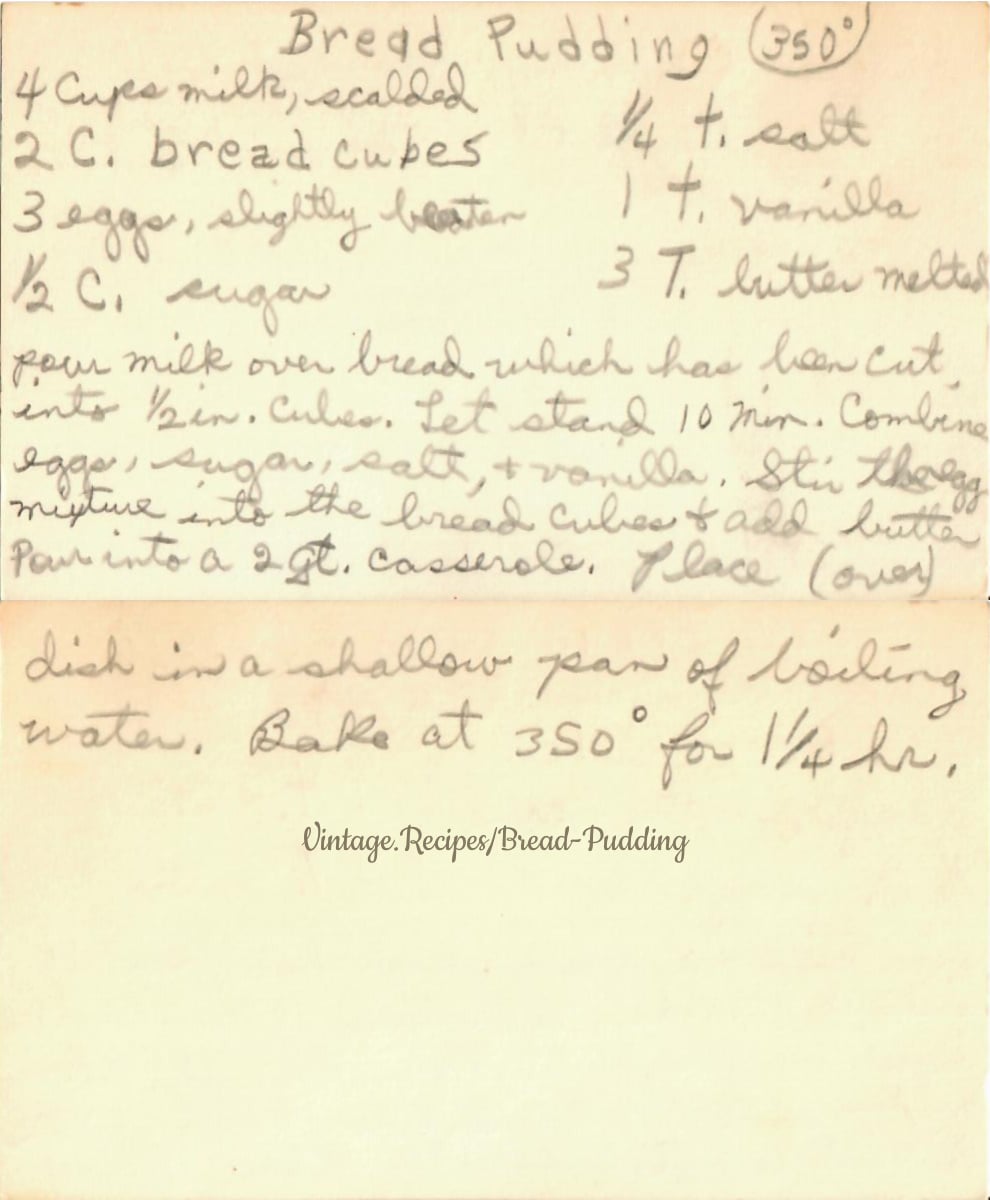 Bread Pudding (350°)
4 Cups milk, scalded
2 C. bread cubes
3 eggs, slightly beaten
1/2 C. sugar
1/4 t. salt
1 t. vanilla
3 T. butter melted
pour milk over bread which has been cut
into 1/2 in. cubes. Let stand 10 min. Combine
eggs, sugar, salt, + vanilla. Stir the egg
mixture into the bread cubes + add butter
Pour into a 2 qt. casserole. Place (over)
dish in a shallow pan of boiling
water. Bake at 350° for 1 1/4 hr.
Vintage.Recipes/Bread-Pudding